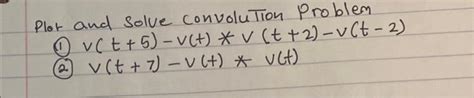 Plot and Solve Convolution Problem
① v(t+5)-v(t) * v(t+2)-v(t-2)
② v(t+7)-v(t) * v(t)